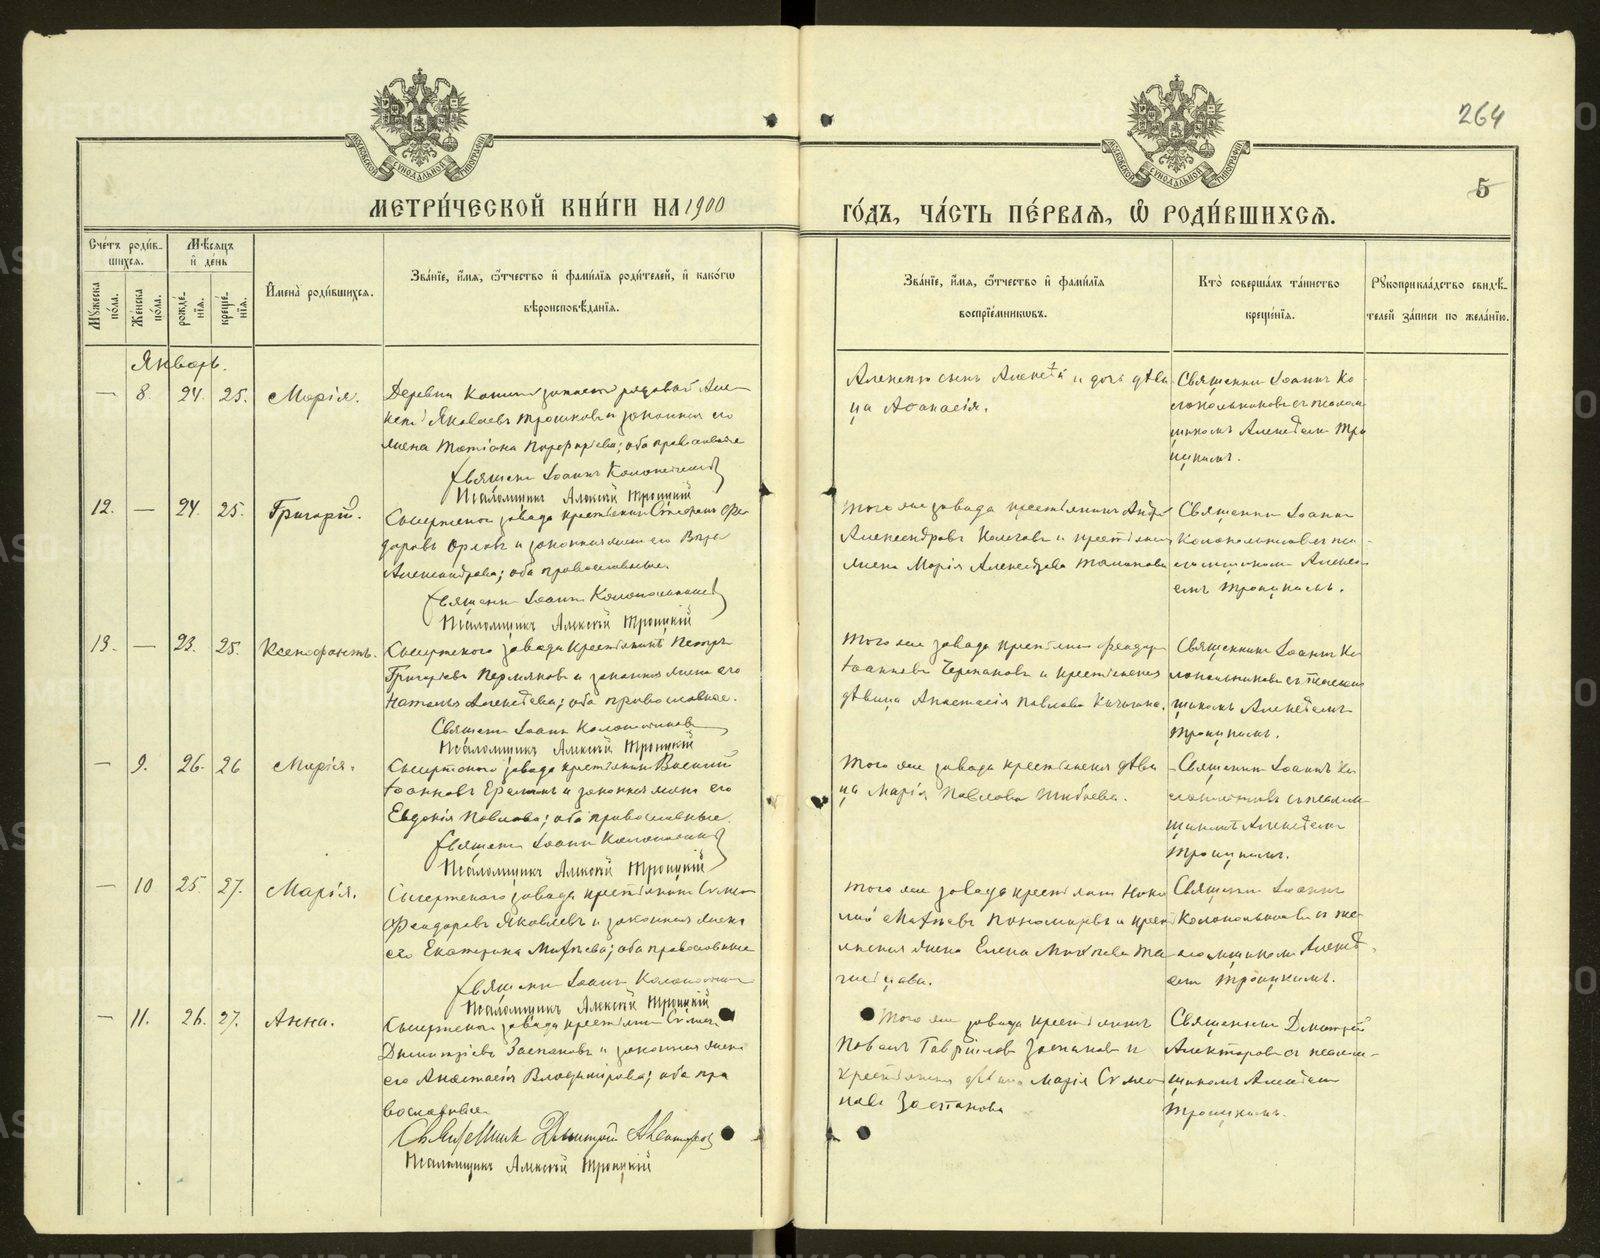 264
5
МОСКОВСКОЙ СѴНОДАЛЬНОЙ ТИПОГРАФІИ
МОСКОВСКОЙ СѴНОДАЛЬНОЙ ТИПОГРАФІИ
МЕТРИ́ЧЕСКОЙ КНИ́ГИ НА 1900
ГО́ДЪ, ЧА́СТЬ ПЕ́РВАѦ, Ѡ҆ РОДИ́ВШИХСѦ.
Сче́тъ роди́в-
шихсѧ.
Мꙋ́жеска по́ла.
Же́нска по́ла.
Мѣ́сѧцъ и҆ де́нь
рожде́-нїѧ.
креще́-нїѧ.
И҆мена̀ роди́вшихсѧ.
Зва́нїе, и҆́мѧ, ѻ҆́тчество и҆ фами́лїѧ роди́телей, и҆ како́гѡ
вѣроисповѣ́данїѧ.
Зва́нїе, и҆́мѧ, ѻ҆́тчество и҆ фами́лїѧ
воспрїе́мникѡвъ.
Кто̀ соверша́лъ та́инство
креще́нїѧ.
Рꙋкоприкла́дство свидѣ́-
телей за́писи по жела́нїю.
Январь.
— 8. 24. 25. Марія.
Деревни запасной рядовой Але-
ксѣй Яковлевъ Трошковъ и законная его
жена Татіана Порфиріева; оба православные
Священн. Іоаннъ Колокольниковъ
Псаломщикъ Алексѣй Троицкій
сынъ Алексѣй и дочь дѣви
ца Аѳанасія.
Священникъ Іоаннъ Ко-
локольниковъ съ псалом-
щикомъ Алексѣемъ Тро
ицкимъ.
12. — 24. 25. Григорій.
Сысертскаго завода крестьянинъ Стефанъ Ѳео
доровъ Орловъ и законная жена его Вѣра
Александрова; оба православные.
Священн. Іоаннъ Колокольниковъ
Псаломщикъ Алексѣй Троицкій
Того же завода крестьянинъ
Александровъ и крестьянская
жена Марія Алексѣева
Священникъ Іоаннъ
Колокольниковъ съ пса-
ломщикомъ Алексѣ-
емъ Троицкимъ.
13. — 23. 25. Ксенофонтъ.
Сысертскаго завода крестьянинъ Петръ
Григорьевъ Пермяковъ и законная жена его
Наталья Алексѣева; оба православные.
Священн. Іоаннъ Колокольниковъ
Псаломщикъ Алексѣй Троицкій
Того же завода крестьянинъ Ѳеодоръ
Іоанновъ Черепановъ и крестьянская
дѣвица Анастасія Павлова
Священникъ Іоаннъ Ко
локольниковъ съ псалом
щикомъ Алексѣемъ
Троицкимъ.
— 9. 26. 26 Марія.
Сысертскаго завода крестьянинъ Василій
Іоанновъ и законная жена его
Евдокія Павлова; оба православные.
Священн. Іоаннъ Колокольниковъ
Псаломщикъ Алексѣй Троицкій
Того же завода крестьянская дѣви
ца Марія Павлова
Священникъ Іоаннъ Ко
локольниковъ съ псалом-
щикомъ Алексѣемъ
Троицкимъ.
— 10 25. 27. Марія.
Сысертскаго завода крестьянинъ Симеонъ
Ѳеодоровъ Яковлевъ и законная жена
его Екатерина Матѳіева; оба православные
Священн. Іоаннъ Колокольниковъ
Псаломщикъ Алексѣй Троицкій
Того же завода крестьянинъ Нико
лай Матѳіевъ Пономаревъ и крест
янская жена Елена
Священникъ Іоаннъ
Колокольниковъ съ пса-
ломщикомъ Алексѣ-
емъ Троицкимъ.
— 11. 26. 27. Анна.
Сысертскаго завода крестьянинъ Симеонъ
Димитріевъ Заспановъ и законная жена
его Анастасія Владимірова; оба пра
вославные.
Священникъ Димитрій
Псаломщикъ Алексѣй Троицкій
Того же завода крестьянинъ
Павелъ Гавріиловъ Заспановъ и
крестьянская дѣвица Марія Симео
нова Заспанова
Священникъ Димитрій
съ псалом-
щикомъ Алексѣемъ
Троицкимъ.